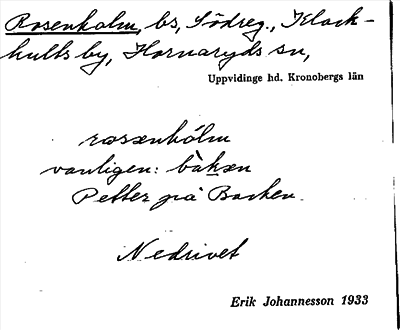 Rosenholm, bs, Södreg., Klack-
hults by, Hornaryds sn,
Uppvidinge hd. Kronobergs län
rosænhólm
vanligen: bàkæn
Petter på Backen.
Nedrivet
Erik Johannesson 1933